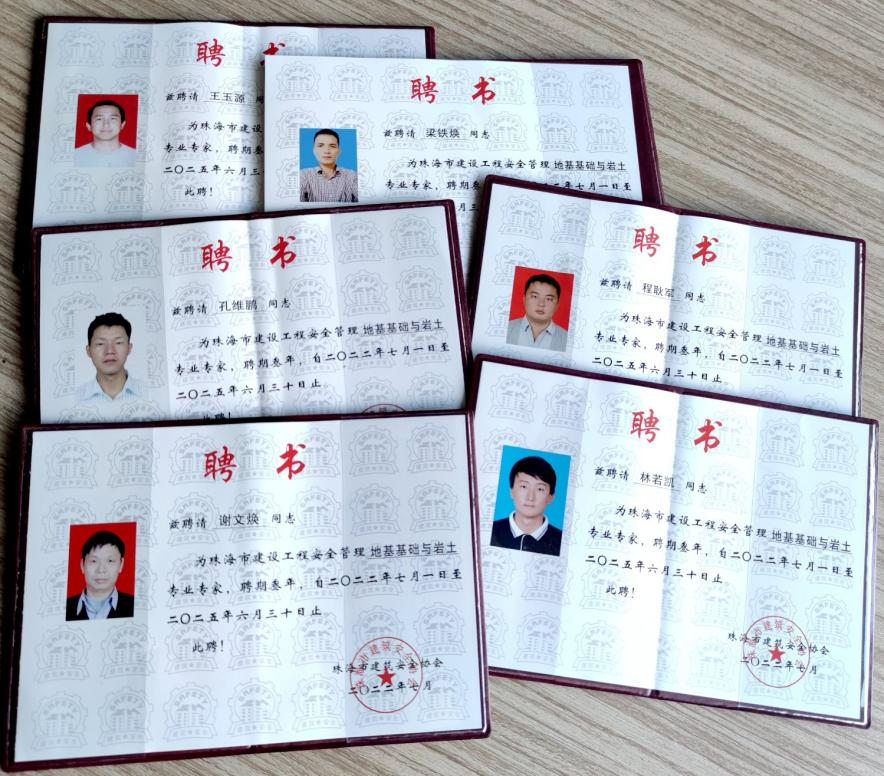 聘 书
兹聘请 王玉源 同
为珠海市建设
专业专家，聘期
二〇二五年六月三
此聘！
聘 书
兹聘请 梁铁焕 同志
为珠海市建设工程安全管理 地基基础与岩土
专业专家，聘期叁年，自二〇二二年七月一日至
月三
聘 书
兹聘请 孔维鹏 同志
为珠海市建设工程安全管理 地基基础与岩土
专业专家，聘期叁年，自二〇二二年七月一日至
二〇二五年六月三十日止。
此聘！
聘 书
兹聘请 程耿军 同志
为珠海市建设工程安全管理 地基基础与岩土
专业专家，聘期叁年，自二〇二二年七月一日至
二〇二五年六月三十日止。
聘 书
兹聘请 谢文焕 同志
为珠海市建设工程安全管理 地基基础与岩土
专业专家，聘期叁年，自二〇二二年七月一日至
二〇二五年六月三十日止。
此聘！
珠海市建筑安全协会
二〇二二年七月
聘 书
兹聘请 林若凯 同志
为珠海市建设工程安全管理 地基基础与岩土
专业专家，聘期叁年，自二〇二二年七月一日至
二〇二五年六月三十日止。
此聘！
珠海市建筑安全协会
二〇二二年七月